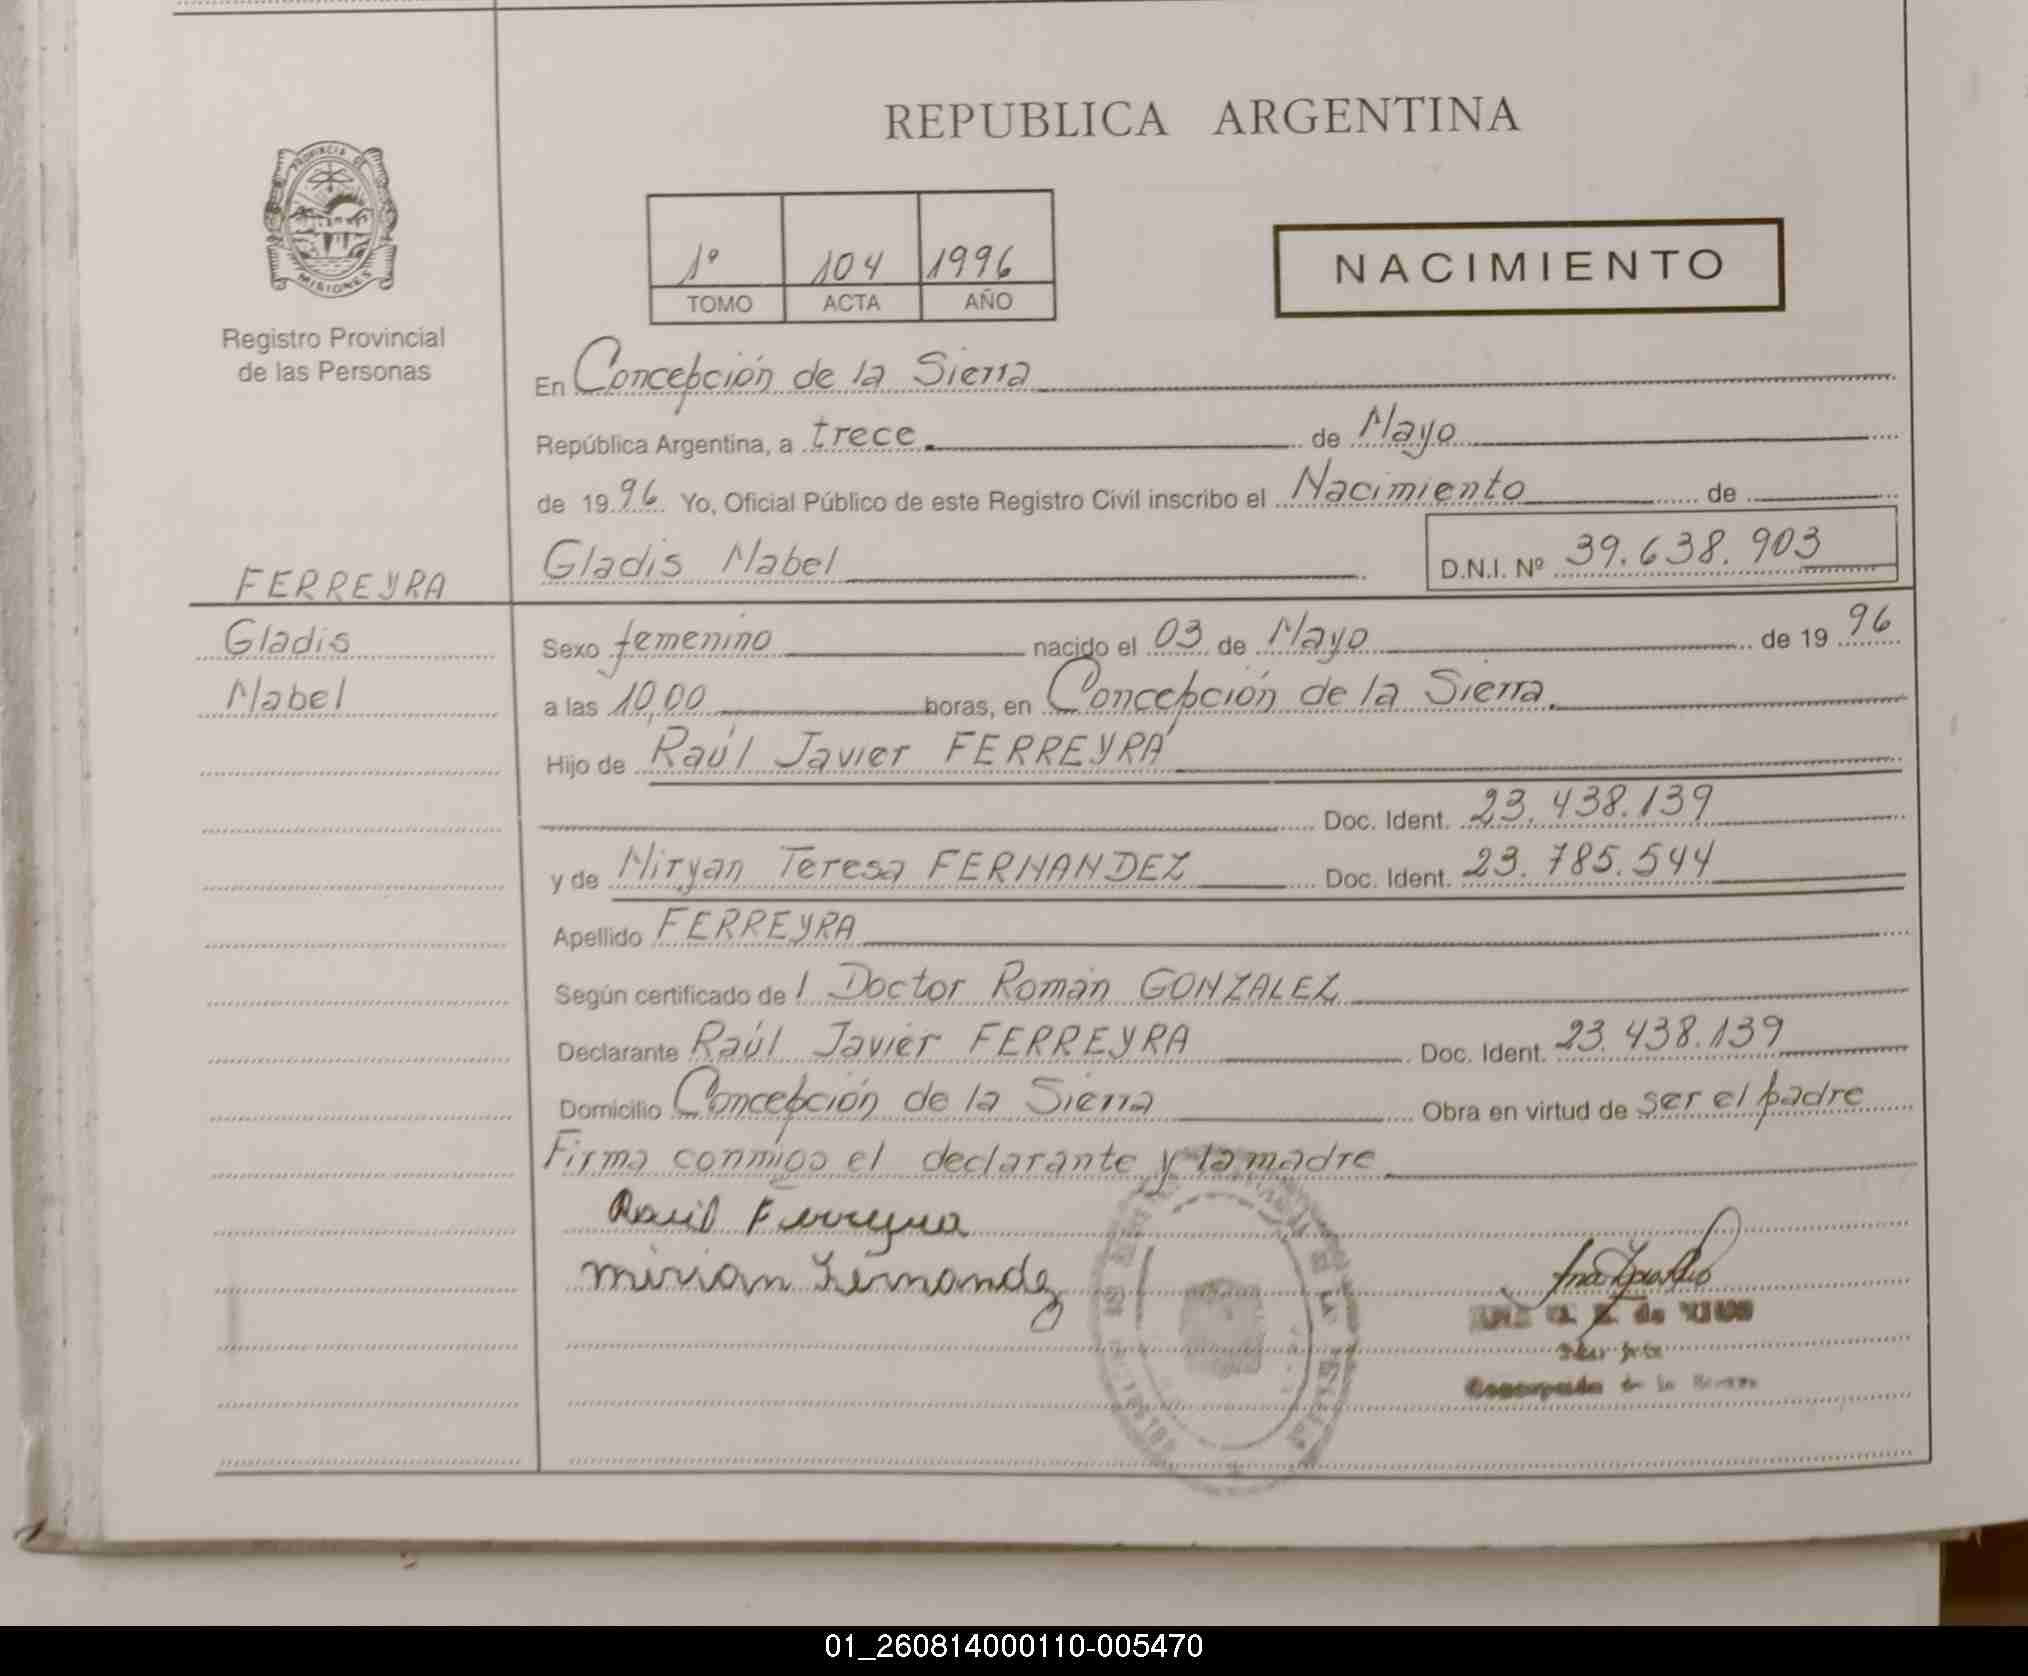 REPUBLICA ARGENTINA
PROVINCIA DE
MISIONES
Registro Provincial
de las Personas
1º 104 1996
TOMO ACTA AÑO
NACIMIENTO
En Concepción de la Sierra
República Argentina, a trece de Mayo
de 1996 Yo, Oficial Público de este Registro Civil inscribo el Nacimiento de
Gladis Mabel D.N.I. Nº 39.638.903
FERREYRA
Gladis
Mabel
Sexo femenino nacido el 03 de Mayo de 1996
a las 10,00 horas, en Concepción de la Sierra.
Hijo de Raúl Javier FERREYRA
Doc. Ident. 23.438.139
y de Miryan Teresa FERNANDEZ Doc. Ident. 23.785.544
Apellido FERREYRA
Según certificado del Doctor Román GONZALEZ
Declarante Raúl Javier FERREYRA Doc. Ident. 23.438.139
Domicilio Concepción de la Sierra Obra en virtud de ser el padre
Firma conmigo el declarante y la madre
Raul Ferreyra
mirian Fernandez
Concepción de la Sierra
01_260814000110-005470